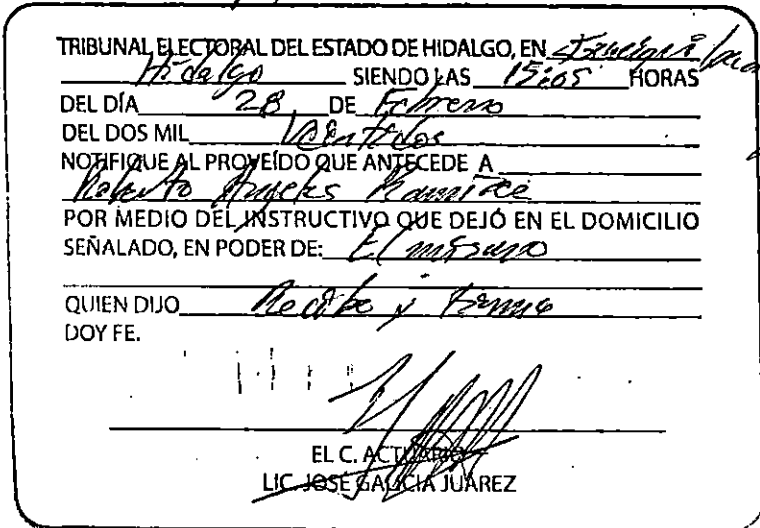 TRIBUNAL ELECTORAL DEL ESTADO DE HIDALGO, EN
Hidalgo SIENDO LAS 15:05 HORAS
DEL DÍA 28 DE Febrero
DEL DOS MIL Veintidos
NOTIFIQUE AL PROVEÍDO QUE ANTECEDE A
Roberto Angeles
POR MEDIO DEL INSTRUCTIVO QUE DEJÓ EN EL DOMICILIO
SEÑALADO, EN PODER DE: El mismo
QUIEN DIJO Recibe y Firma
DOY FE.
EL C. ACTUARIO
LIC. JOSÉ GALICIA JUÁREZ